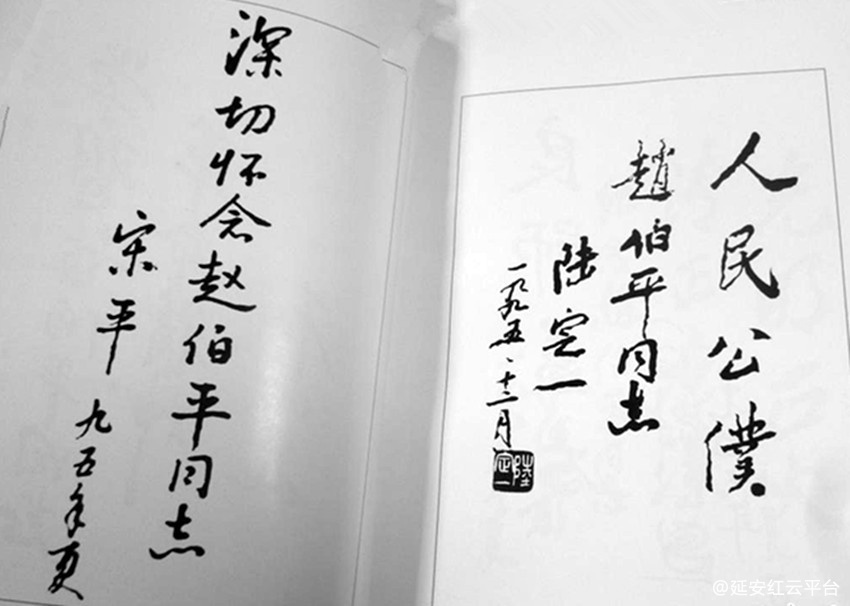 人民公僕
趙伯平同志
陆定一
一九九五、十二月
陸定一
深切怀念赵伯平同志
宋平
九五年夏
@延安红云平台